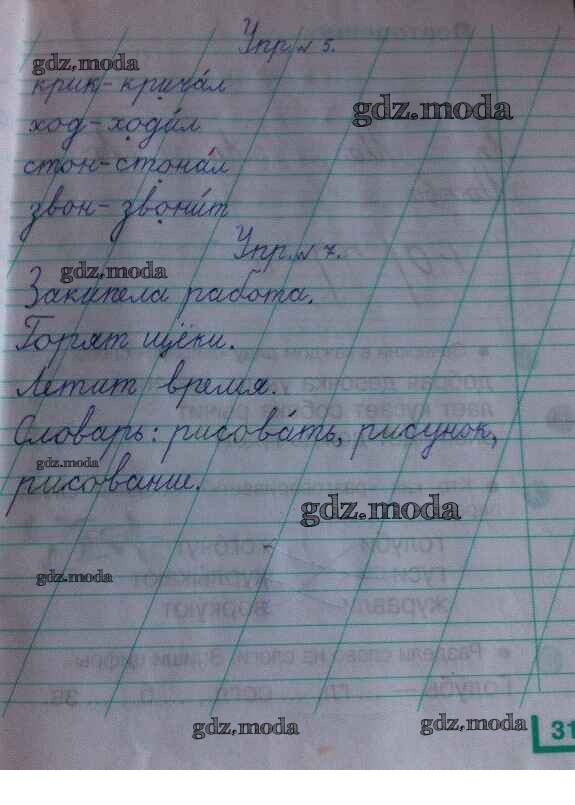 Упр. № 5.
gdz.moda
крик - крича́л
gdz.moda
ход - ходи́л
стон - стона́л
звон - звони́т
Упр. № 7.
gdz.moda
Закипела работа.
Горят щёки.
Летит время.
Словарь: рисова́ть, рисунок,
gdz.moda
рисование.
gdz.moda
gdz.moda
gdz.moda
gdz.moda
31